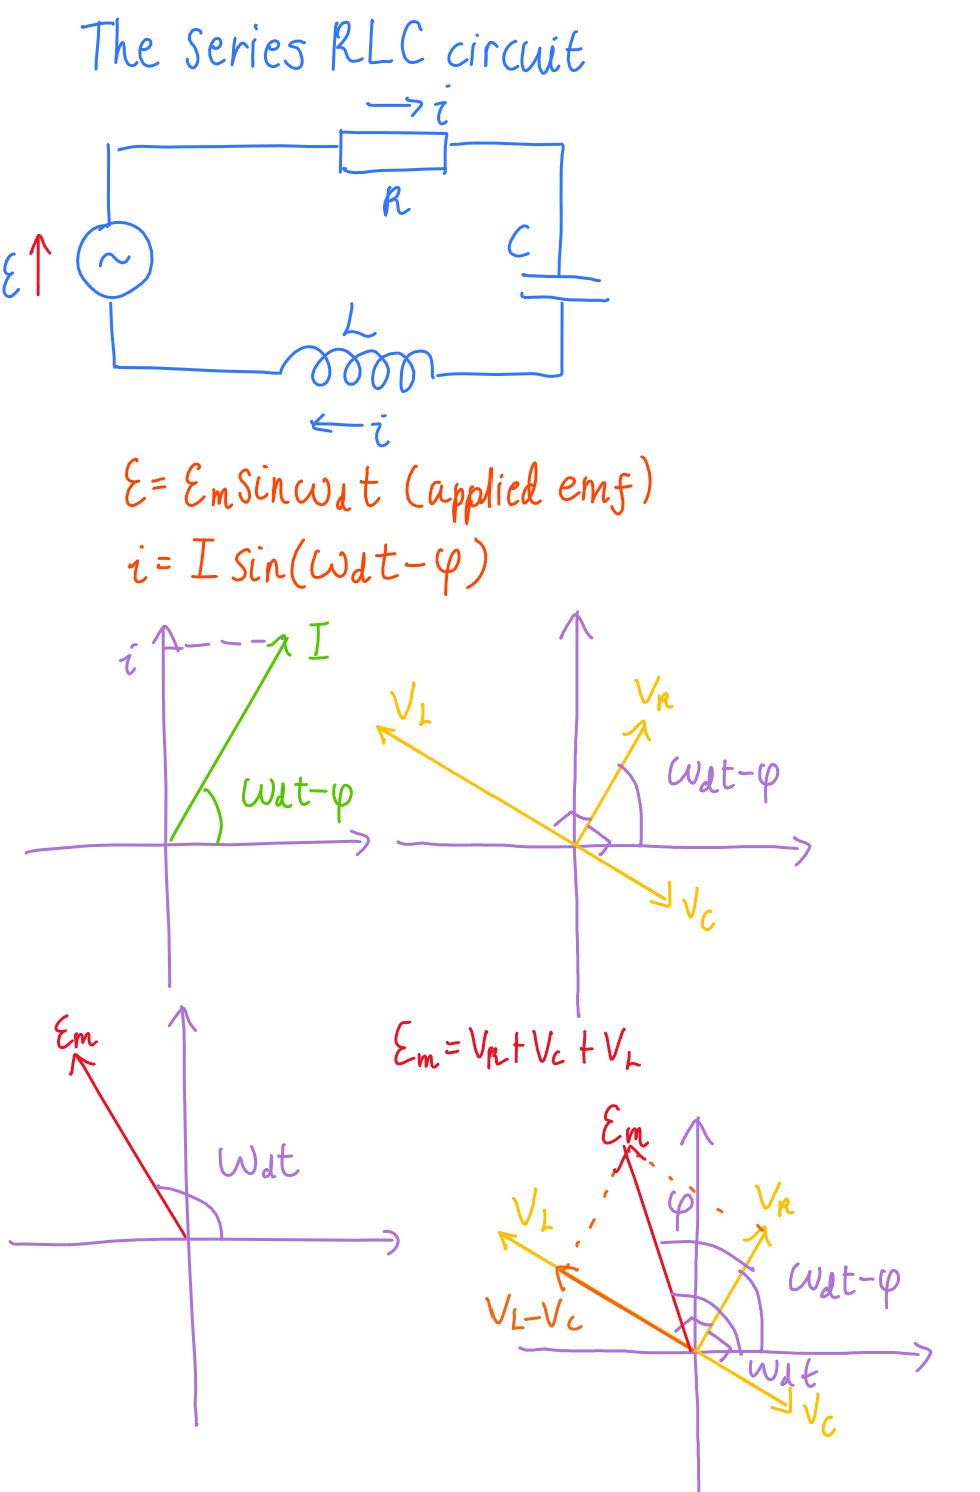 The series RLC circuit
i
R
C
ε
~
L
i
ε = εm sin ωd t (applied emf)
i = I sin(ωd t - φ)
i
I
ωd t - φ
VL
VR
ωd t - φ
VC
εm
ωd t
εm = VR + VC + VL
εm
φ
VL
VR
ωd t - φ
VL - VC
ωd t
VC